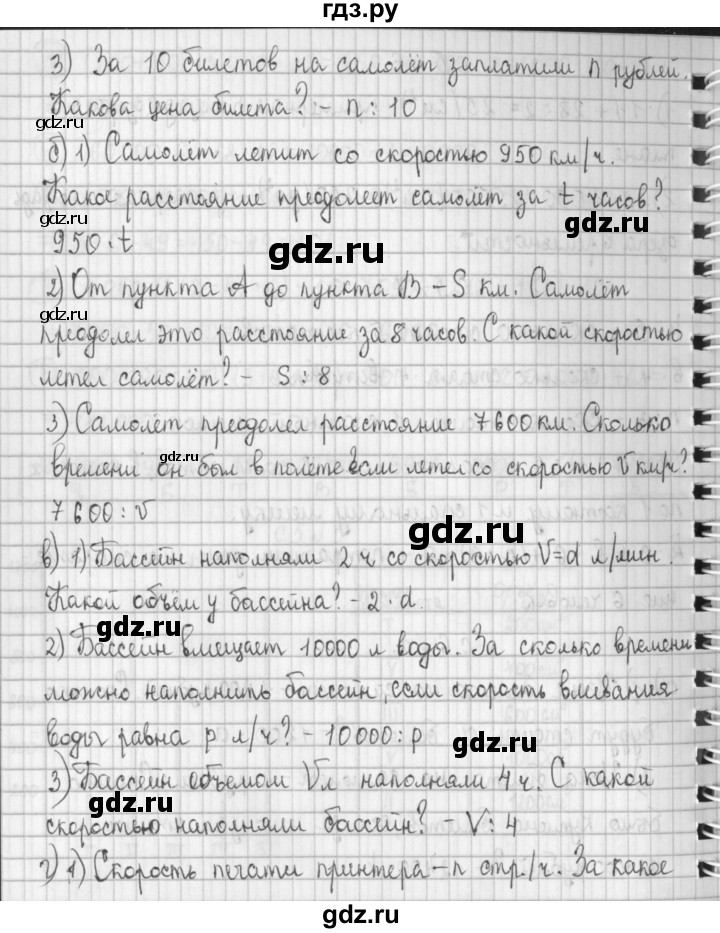 гдз.ру
3) За 10 билетов на самолёт заплатили n рублей.
Какова цена билета? – n : 10
gdz.ru
б) 1) Самолёт летит со скоростью 950 км/ч.
Какое расстояние преодолеет самолёт за t часов?
gdz.ru
gdz.ru
950 · t
gdz.ru
2) От пункта A до пункта B – S км. Самолёт
gdz.ru
преодолел это расстояние за 8 часов. С какой скоростью
летел самолёт? – S : 8
gdz.ru
3) Самолёт преодолел расстояние 7600 км. Сколько
gdz.ru
времени он был в полёте если летел со скоростью V км/ч?
7600 : V
gdz.ru
gdz.ru
в) 1) Бассейн наполняли 2 ч со скоростью V=d л/мин.
Какой объём у бассейна? – 2 · d.
gdz.ru
2) Бассейн вмещает 10000 л воды. За сколько времени
можно наполнить бассейн, если скорость вливания
воды равна p л/ч? – 10000 : p
gdz.ru
3) Бассейн объемом V л наполняли 4 ч. С какой
gdz.ru
скоростью наполняли бассейн? – V : 4
г) 1) Скорость печати принтера – n стр./ч. За какое
gdz.ru